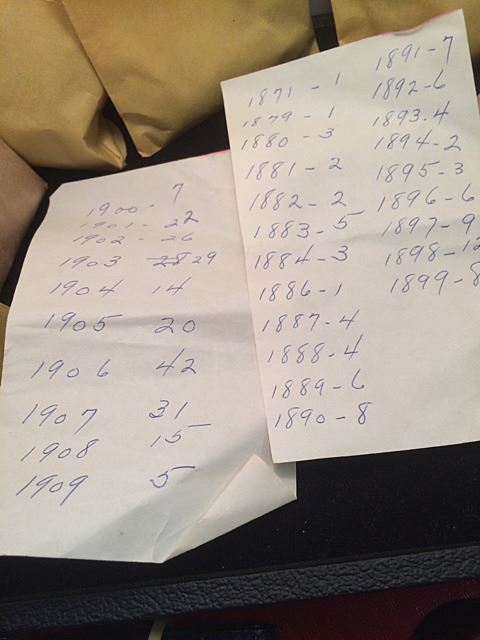 1900 - 7
1901 - 22
1902 - 26
1903 28 29
1904 14
1905 20
1906 42
1907 31
1908 15
1909 5
1871 - 1
1879 - 1
1880 - 3
1881 - 2
1882 - 2
1883 - 5
1884 - 3
1886 - 1
1887 - 4
1888 - 4
1889 - 6
1890 - 8
1891 - 7
1892 - 6
1893 - 4
1894 - 2
1895 - 3
1896 - 6
1897 - 9
1898 - 12
1899 - 8